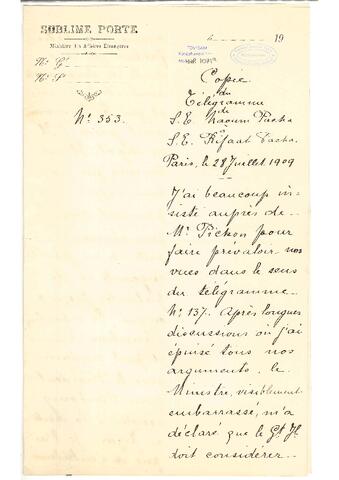 SUBLIME PORTE
Ministère des Affaires Etrangères
le 19
N° G¹
N° S¹
Copie
du
Télégramme
de
N° 353.
S.E. Naoum Pacha
à
S.E. Rifaat Pacha.
Paris, le 28 Juillet 1909
J'ai beaucoup in-
sisté auprès de
Mr Pichon pour
faire prévaloir nos
vues dans le sens
du télégramme
N° 137. Après longues
discussions où j'ai
épuisé tous nos
arguments, le
Ministre, visiblement
embarrassé, m'a
déclaré que le Gt. H.
doit considérer